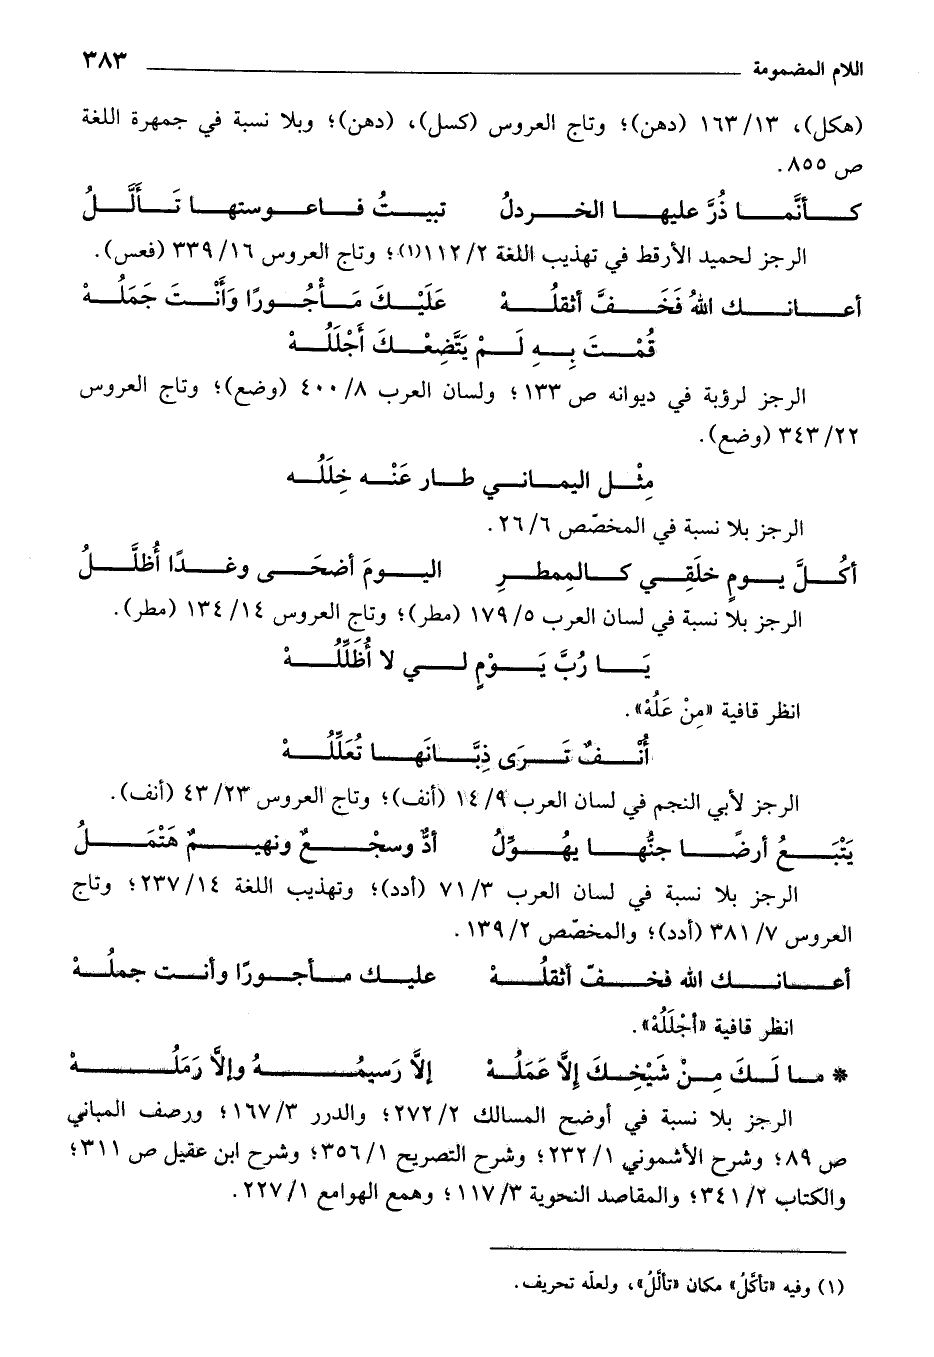 اللام المضمومة ٣٨٣
(هكل)، ١٦٣/١٣ (دهن)؛ وتاج العروس (كسل)، (دهن)؛ وبلا نسبة في جمهرة اللغة
ص ٨٥٥.
كأنَّما ذُرَّ عليها الخردلُ تبيتُ فاعوستها تَألَّلُ
الرجز لحميد الأرقط في تهذيب اللغة ١١٢/٢(١)؛ وتاج العروس ٣٣٩/١٦ (فعس).
أعانك اللهُ فَخَفَّ أثقلُهْ عَلَيْكَ مَأْجُورًا وَأَنْتَ جَمَلُهْ
قُمْتَ بِهِ لَمْ يَتَّضِعْكَ أَجْلَلُهْ
الرجز لرؤبة في ديوانه ص ١٣٣؛ ولسان العرب ٤٠٠/٨ (وضع)؛ وتاج العروس
٣٤٣/٢٢ (وضع).
مِثْل اليماني طار عَنْه خِلَلُه
الرجز بلا نسبة في المخصّص ٢٦/٦.
أكُلَّ يومٍ خلَقِي كالمِمطرِ اليومَ أضحَى وغدًا أُظلَّلُ
الرجز بلا نسبة في لسان العرب ١٧٩/٥ (مطر)؛ وتاج العروس ١٣٤/١٤ (مطر).
يَا رُبَّ يَوْمٍ لي لا أُظَلِّلُهْ
انظر قافية «مِنْ عَلُهْ».
أُنْفٌ تَرَى ذِبَّانَها تُعَلِّلُهْ
الرجز لأبي النجم في لسان العرب ١٤/٩ (أنف)؛ وتاج العروس ٤٣/٢٣ (أنف).
يَتْبَعُ أرضًا جنُّها يهُوِّلُ أدٌّ وسجْعٌ ونهيمٌ هَتْمَلُ
الرجز بلا نسبة في لسان العرب ٧١/٣ (أدد)؛ وتهذيب اللغة ٢٣٧/١٤؛ وتاج
العروس ٣٨١/٧ (أدد)؛ والمخصّص ١٣٩/٢.
أعانك الله فخفّ أثقلُهْ عليك مأجورًا وأنت جملُهْ
انظر قافية «أجْلَلُهْ».
* ما لَكَ مِنْ شَيْخِكَ إلَّا عَمَلُهْ إلَّا رَسيمُهُ وإلَّا رَمَلُهْ
الرجز بلا نسبة في أوضح المسالك ٢٧٢/٢؛ والدرر ١٦٧/٣؛ ورصف المباني
ص ٨٩؛ وشرح الأشموني ٢٣٢/١؛ وشرح التصريح ٣٥٦/١؛ وشرح ابن عقيل ص ٣١١؛
والكتاب ٣٤١/٢؛ والمقاصد النحوية ١١٧/٣؛ وهمع الهوامع ٢٢٧/١.
(١) وفيه «تأكَّلُ» مكان «تألَّلُ»، ولعلّه تحريف.